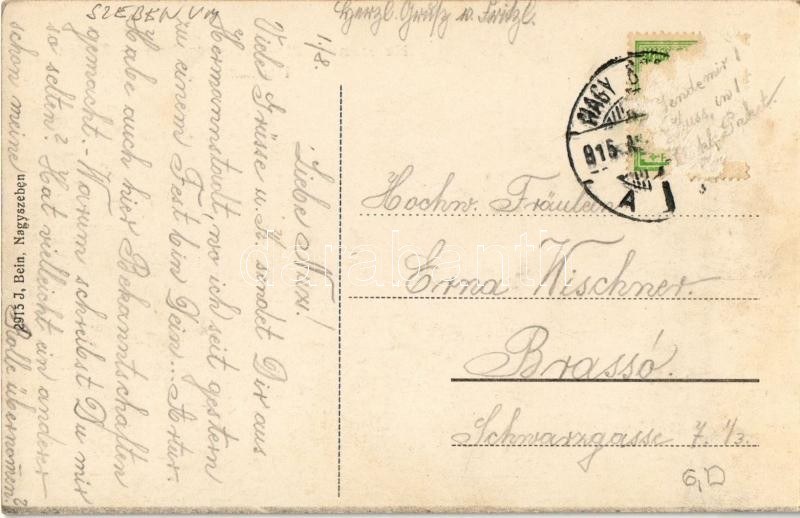 SZEBEN V M
Herzl. Grusz v. Fritzl.
1/8.
Liebe Nuxi!
Viele Grüsse u. K. sendet Dir aus
Hermannstadt, wo ich seit gestern
zu einem Fest bin Dein... Artur.
Habe auch hier Bekanntschaften
gemacht. - Warum schreibst Du mir
so selten? Hat vielleicht ein anderer
schon meine Rolle übernomen?
2915 J, Bein. Nagyszeben
NAGY
915
A
Sende mir 1
Kuss, in 1
Paket.
Hochw. Fräulein
Erna Wischner.
Brassó.
Schwarzgasse 7. 1/3.
6,D
darabanth